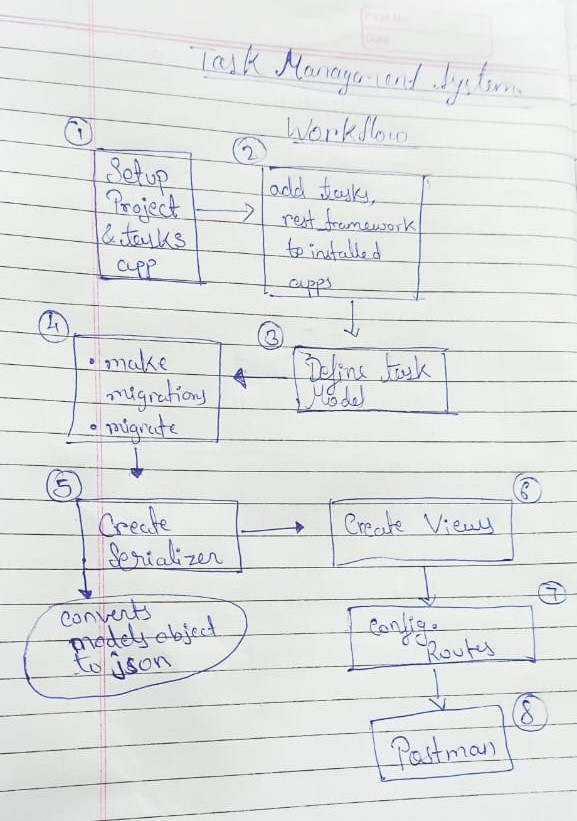 Task Management System
Workflow
①
Setup
Project
& tasks
app
②
add tasks,
rest_framework
to installed
apps
③
Define task
Model
④
• make
migrations
• migrate
⑤
Create
Serializer
converts
models object
to json
⑥
Create Views
⑦
Config.
Routes
⑧
Postman